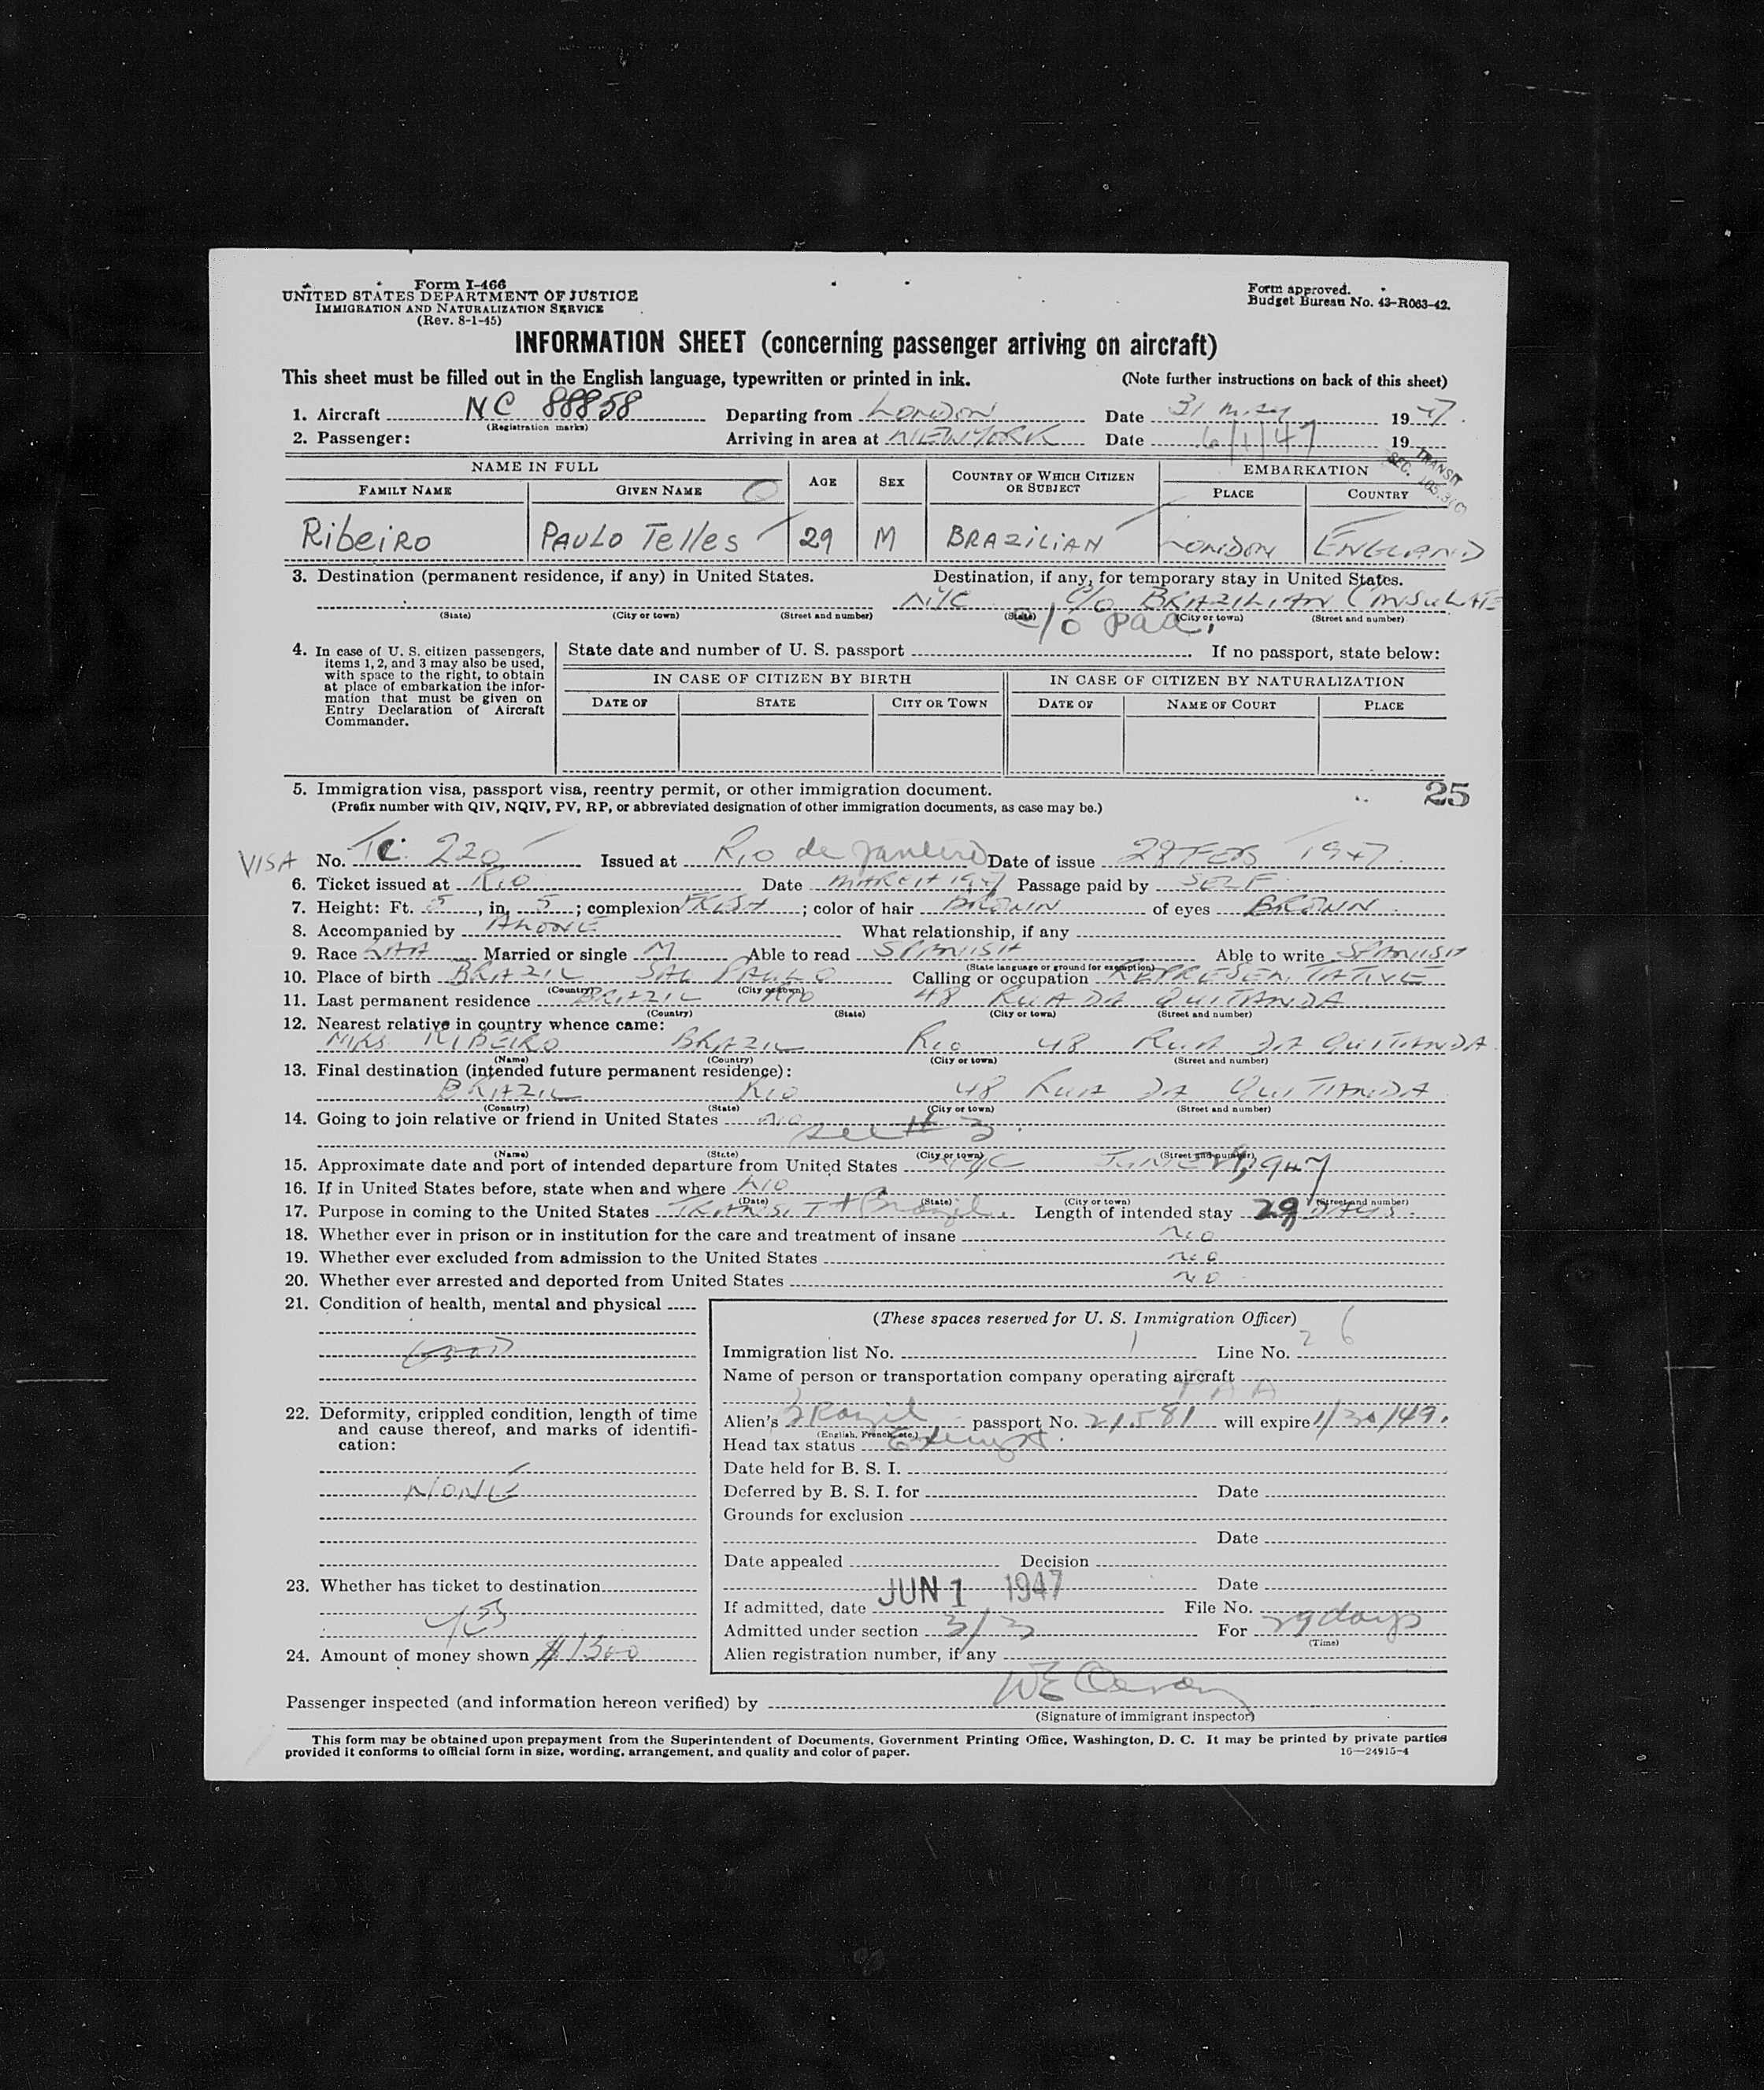 Form I-466
UNITED STATES DEPARTMENT OF JUSTICE
IMMIGRATION AND NATURALIZATION SERVICE
(Rev. 8-1-45)
Form approved.
Budget Bureau No. 43-R063-42.
INFORMATION SHEET (concerning passenger arriving on aircraft)
This sheet must be filled out in the English language, typewritten or printed in ink. (Note further instructions on back of this sheet)
1. Aircraft NC 88858 Departing from LONDON Date 31 May 1947
(Registration marks)
2. Passenger: Arriving in area at NEW YORK Date 6/1/47 19
TRANSIT
SEC.
NAME IN FULL AGE SEX COUNTRY OF WHICH CITIZEN OR SUBJECT EMBARKATION
FAMILY NAME GIVEN NAME PLACE COUNTRY
Ribeiro PAULO Telles 29 M BRAZILIAN LONDON ENGLAND
3. Destination (permanent residence, if any) in United States. Destination, if any, for temporary stay in United States.
NYC c/o BRAZILIAN CONSULATE
(State) (City or town) (Street and number) (State) (City or town) (Street and number)
c/o paa.
4. In case of U. S. citizen passengers, items 1, 2, and 3 may also be used, with space to the right, to obtain at place of embarkation the information that must be given on Entry Declaration of Aircraft Commander.
State date and number of U. S. passport If no passport, state below:
IN CASE OF CITIZEN BY BIRTH IN CASE OF CITIZEN BY NATURALIZATION
DATE OF STATE CITY OR TOWN DATE OF NAME OF COURT PLACE
5. Immigration visa, passport visa, reentry permit, or other immigration document. 25
(Prefix number with QIV, NQIV, PV, RP, or abbreviated designation of other immigration documents, as case may be.)
VISA No. TC 220 Issued at Rio de Janeiro Date of issue 28 FEB 1947
6. Ticket issued at Rio Date MARCH 1947 Passage paid by SELF
7. Height: Ft. 5, in. 5; complexion FRESH; color of hair BROWN of eyes BROWN
8. Accompanied by ALONE What relationship, if any
9. Race Married or single M Able to read SPANISH Able to write SPANISH
(State language or ground for exemption)
10. Place of birth BRAZIL SAO PAULO Calling or occupation REPRESENTATIVE
(Country) (City or town)
11. Last permanent residence BRAZIL RIO 48 RUA DA QUITANDA
(Country) (State) (City or town) (Street and number)
12. Nearest relative in country whence came:
MRS RIBEIRO BRAZIL RIO 48 RUA DA QUITANDA
(Name) (Country) (City or town) (Street and number)
13. Final destination (intended future permanent residence):
BRAZIL RIO 48 RUA DA QUITANDA
(Country) (State) (City or town) (Street and number)
14. Going to join relative or friend in United States NO
see # 3
(Name) (State) (City or town) (Street and number)
15. Approximate date and port of intended departure from United States NYC JUNE 1947
16. If in United States before, state when and where NO
(Date) (State) (City or town) (Street and number)
17. Purpose in coming to the United States TRANSIT Brazil. Length of intended stay 29 DAYS
18. Whether ever in prison or in institution for the care and treatment of insane NO
19. Whether ever excluded from admission to the United States NO
20. Whether ever arrested and deported from United States NO
21. Condition of health, mental and physical
GOOD
22. Deformity, crippled condition, length of time and cause thereof, and marks of identification:
NONE
23. Whether has ticket to destination
YES
24. Amount of money shown $1300
(These spaces reserved for U. S. Immigration Officer)
Immigration list No. 1 Line No. 26
Name of person or transportation company operating aircraft
PAA
Alien's Brazil passport No. 21581 will expire 1/30/49.
(English, French, etc.)
Head tax status Exempt.
Date held for B. S. I.
Deferred by B. S. I. for Date
Grounds for exclusion
Date
Date appealed Decision
Date
If admitted, date JUN 1 1947 File No.
Admitted under section 3/3 For 29 days
(Time)
Alien registration number, if any
Passenger inspected (and information hereon verified) by
(Signature of immigrant inspector)
This form may be obtained upon prepayment from the Superintendent of Documents, Government Printing Office, Washington, D. C. It may be printed by private parties
provided it conforms to official form in size, wording, arrangement, and quality and color of paper. 16—24915-4